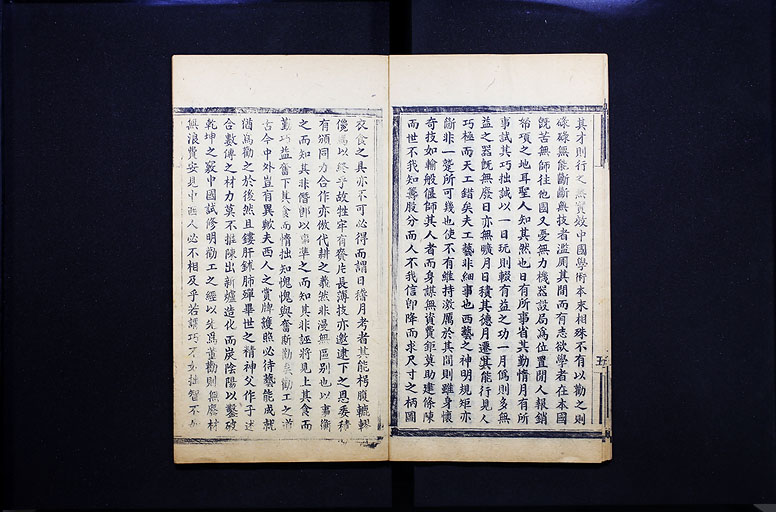 其才則行之無實效中國學術本末相殊不有以勸之則
碌碌無能斷斷無技者濫廁其間而有志欲學者在本國
既苦無師往他國又憂無力機器設局爲位置閒人報銷
帑項之地耳聖人知其然也日有所事省其勤惰月有所
事試其巧拙誠以一日玩則輟有益之功一月僞則多無
益之器既無廢日亦無曠月日積其德月遷其能行見人
巧極而天工錯矣夫工藝非細事也西藝之神明規矩亦
斷非一蹙所可幾也使不有維持激厲於其間則雖身懷
奇技如輸般偃師其人者而身謀無資費鉅莫助建條陳
而世不我知籌股分而人不我信卽降而求尺寸之柄圖
衣食之具亦不可必得而謂日稽月考者其能枵腹轆轤
儳焉以終乎故牲牢有賚片長薄技亦邀逮下之恩委積
有頒同力合作亦倣代耕之義然非漫無區別也以事衡
之而知其非僭卽以事準之而知其非誣將見上其食而
勤巧益奮下其食而惰拙知愧愧與奮斯勸矣勸工之道
古今中外豈有異歟夫西人之賞牌護照必待藝能成就
酋爲勸之於後然且鏤肝鉥肺殫畢世之精神父作子述
合數傳之材力莫不推陳出新爐造化而炭陰陽以鑿破
乾坤之竅中國試修明勸工之經以先爲董勸則無廢材
無浪費安見中西人必不相及乎若謂巧不如拙智不
五